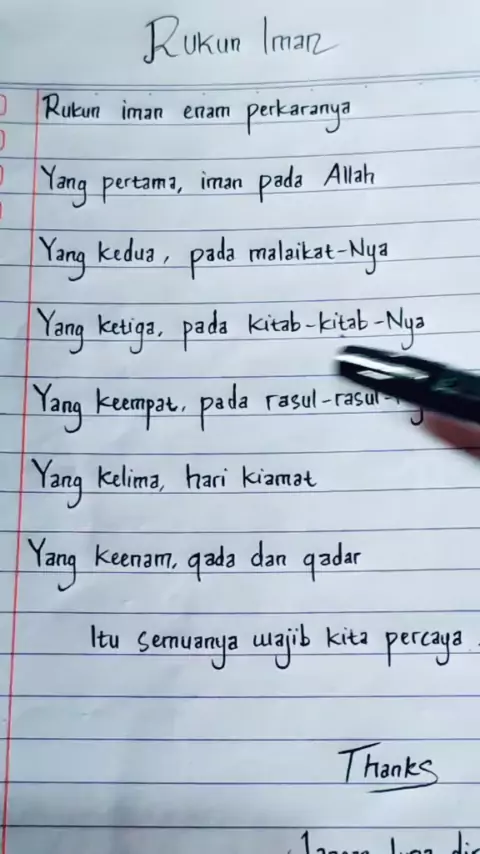 Rukun Iman
Rukun iman enam perkaranya
Yang pertama, iman pada Allah
Yang kedua, pada malaikat-Nya
Yang ketiga, pada kitab-kitab-Nya
Yang keempat, pada rasul-rasul-
Yang kelima, hari kiamat
Yang keenam, qada dan qadar
Itu semuanya wajib kita percaya.
Thanks